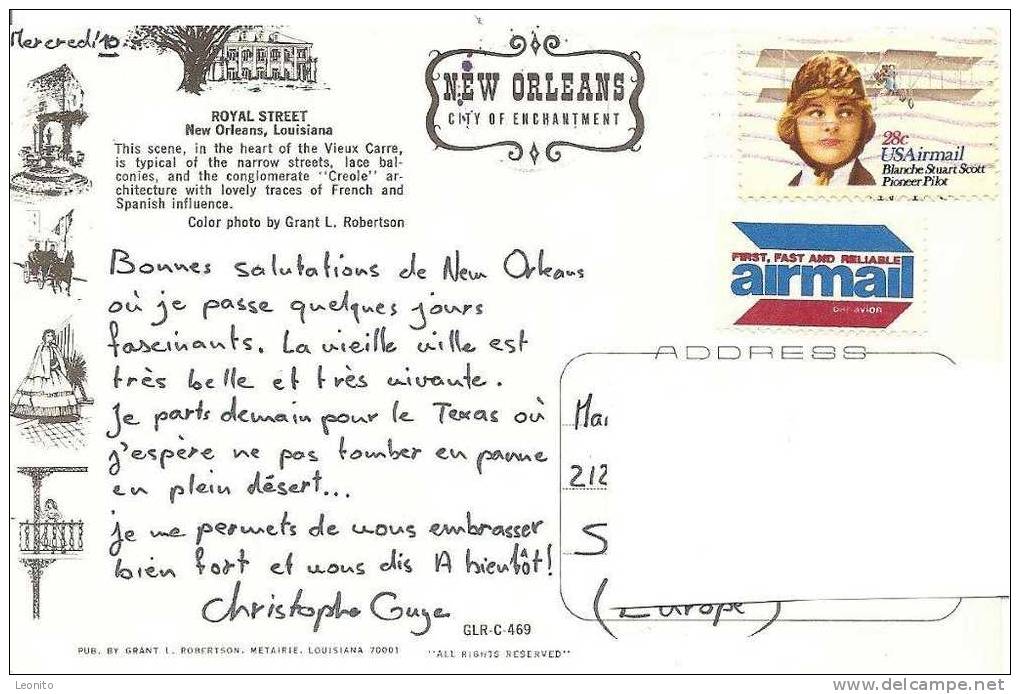 Mercredi 10.
ROYAL STREET
New Orleans, Louisiana
This scene, in the heart of the Vieux Carre,
is typical of the narrow streets, lace bal-
conies, and the conglomerate "Creole" ar-
chitecture with lovely traces of French and
Spanish influence.
Color photo by Grant L. Robertson
NEW ORLEANS
CITY OF ENCHANTMENT
28c
USAirmail
Blanche Stuart Scott
Pioneer Pilot
FIRST, FAST AND RELIABLE
airmail
par avion
Bonnes salutations de New Orleans
où je passe quelques jours
fascinants. La vieille ville est
très belle et très vivante.
Je parts demain pour le Texas où
j'espère ne pas tomber en panne
en plein désert...
je me permets de vous embrasser
bien fort et vous dis A bientôt!
Christophe Guye
ADDRESS
212
S
(Europe)
GLR-C-469
PUB. BY GRANT L. ROBERTSON, METAIRIE, LOUISIANA 70001
"ALL RIGHTS RESERVED"
Leonito
delcampe.net